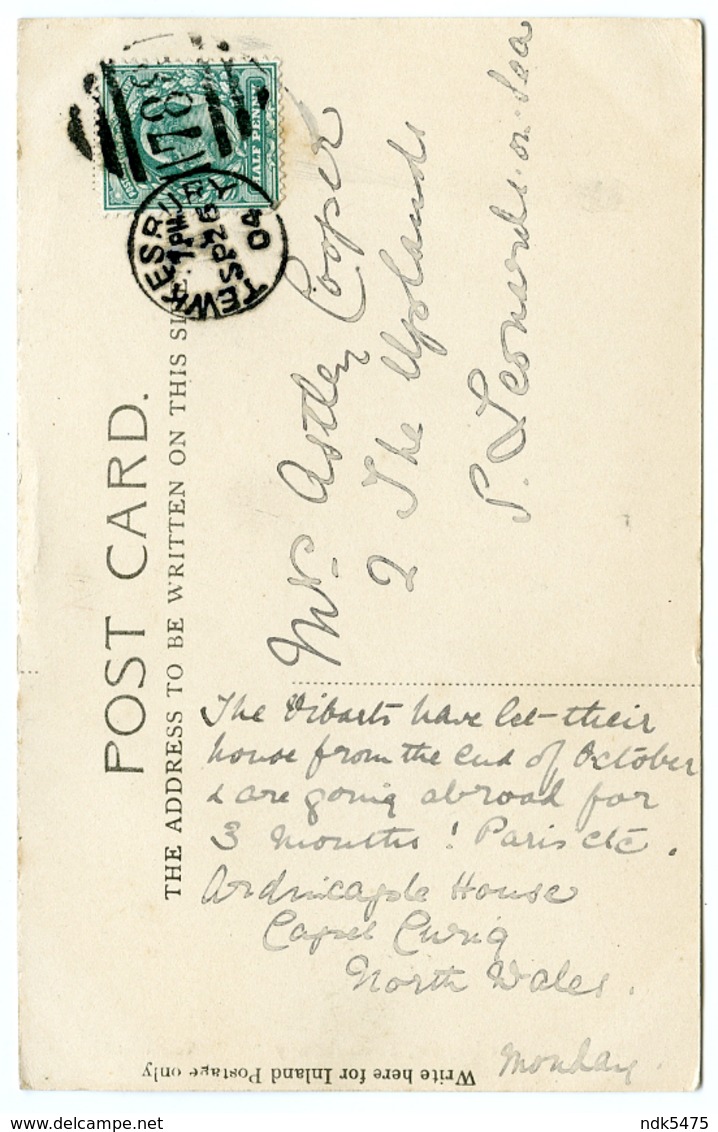 POST CARD.
THE ADDRESS TO BE WRITTEN ON THIS SIDE.
HALF PENNY
785
TEWKESBURY
7 PM
SP 26
04
Mrs. Astley Cooper
2 The Uplands
S. Leonards-on-Sea
The Vibarts have let their
house from the end of October
& are going abroad for
3 months! Paris etc.
House
Capel Curig
North Wales.
Monday.
Write here for Inland Postage only
ndk5475